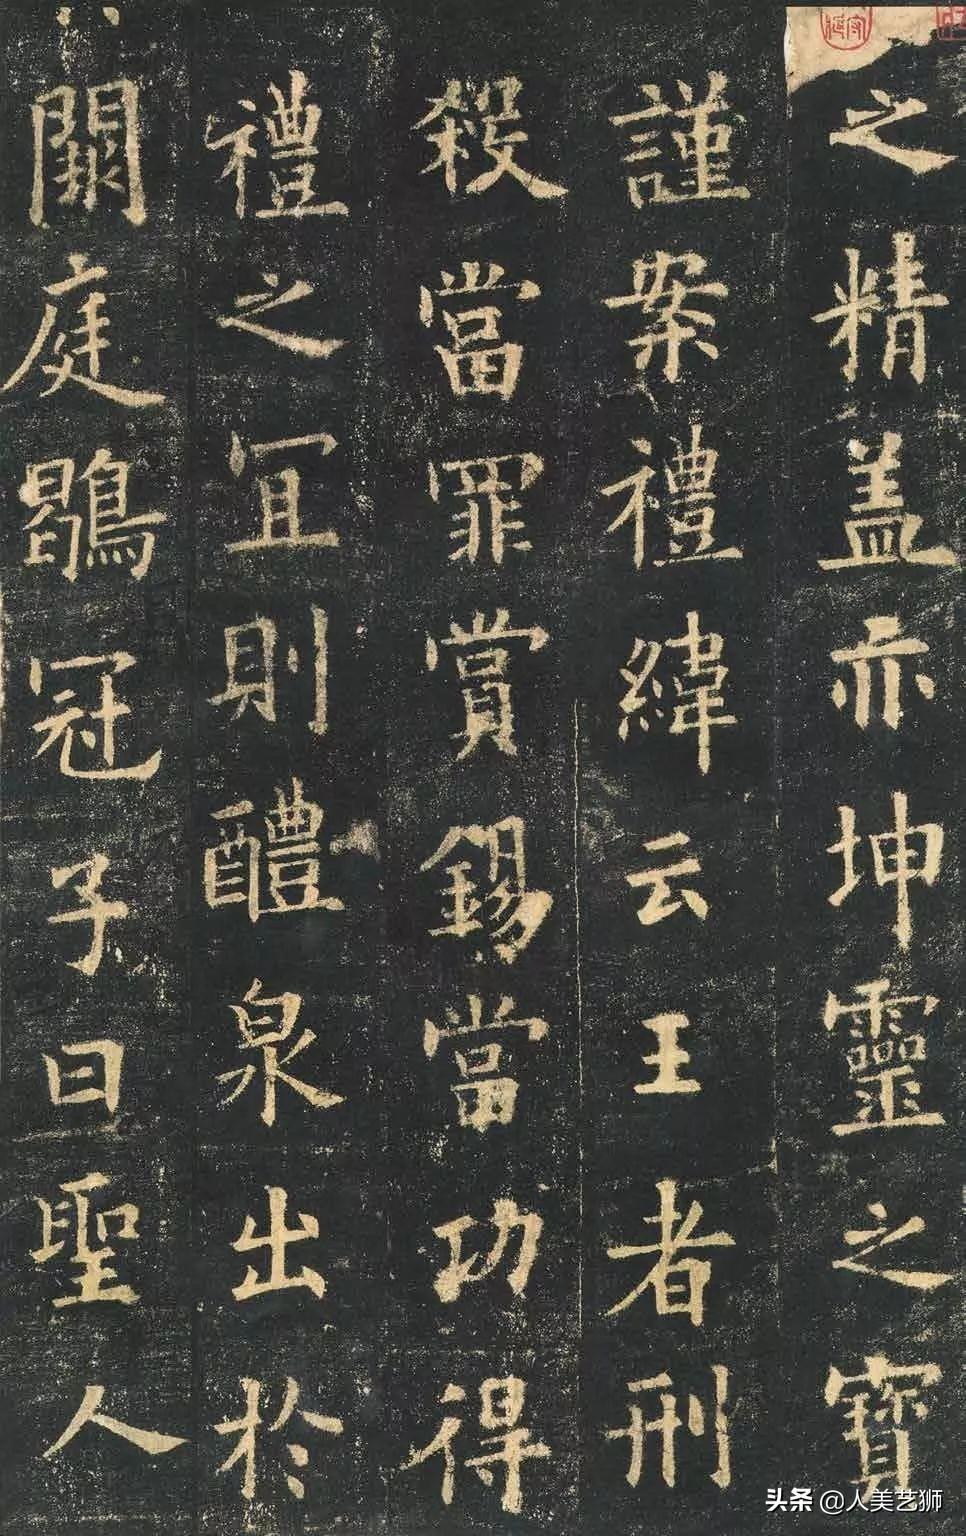 之精盖亦坤靈之寶
謹案禮緯云王者刑
殺當罪賞錫當功得
禮之冝則醴泉出於
闕庭鶡冠子曰聖人
头条 @人美艺狮